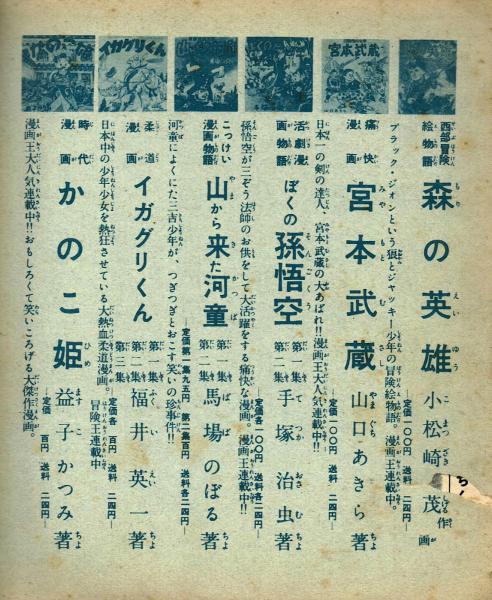 西部冒険
絵物語
森の英雄
小松崎茂作画
―定価一〇〇円 送料二四円―
ブラック・ジョンという狼とジャッキー少年の冒険絵物語。漫画王連載中。
痛快
漫画
宮本武蔵
山口あきら著
―定価一〇〇円 送料二四円―
日本一の剣の達人、宮本武蔵の大あばれ!!漫画王大人気連載中!!
活劇漫
画物語
ぼくの孫悟空
第一集
第二集
手塚治虫著
―定価各一〇〇円 送料各二四円―
孫悟空が三ぞう法師のお供をして大活躍をする痛快な漫画。漫画王連載中!!
こっけい
漫画物語
山から来た河童
第一集
第二集
馬場のぼる著
―定価第一集九五円 第二集百円 送料各二四円―
河童によくにた三吉少年が、つぎつぎとおこす笑いの珍事件!!
柔道
漫画
イガグリくん
第一集
第二集
第三集
福井英一著
―定価各百円 送料二四円―
日本中の少年少女を熱狂させている大熱血柔道漫画。冒険王連載中
時代
漫画
かのこ姫
益子かつみ著
―定価百円 送料二四円―
漫画王大人気連載中!!おもしろくて笑いころげる大傑作漫画。
宮本武蔵
イガグリくん